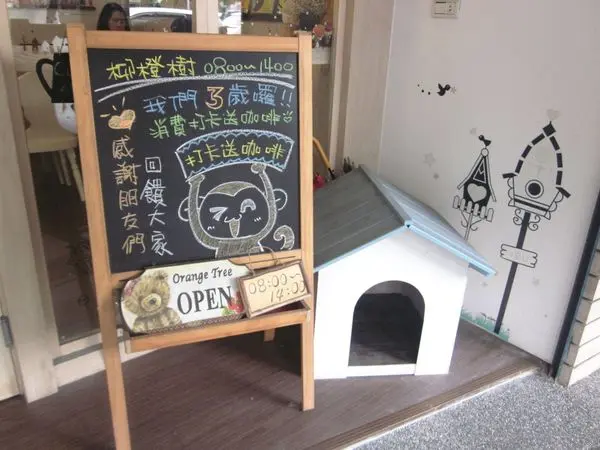 柳橙樹 08:00~14:00
我們3歲囉!!
消費打卡送咖啡
打卡送咖啡
感謝朋友們
回饋大家
Orange Tree
OPEN
08:00~
14:00